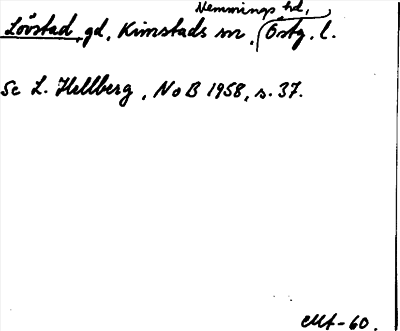 Memmings hd,
Lövstad, gd, Kimstads sn, Östg. l.
Se L. Hellberg, NoB 1958, s. 37.
-60.